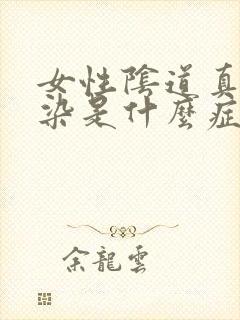 女性陰道真
染是什麼症
余龍雲